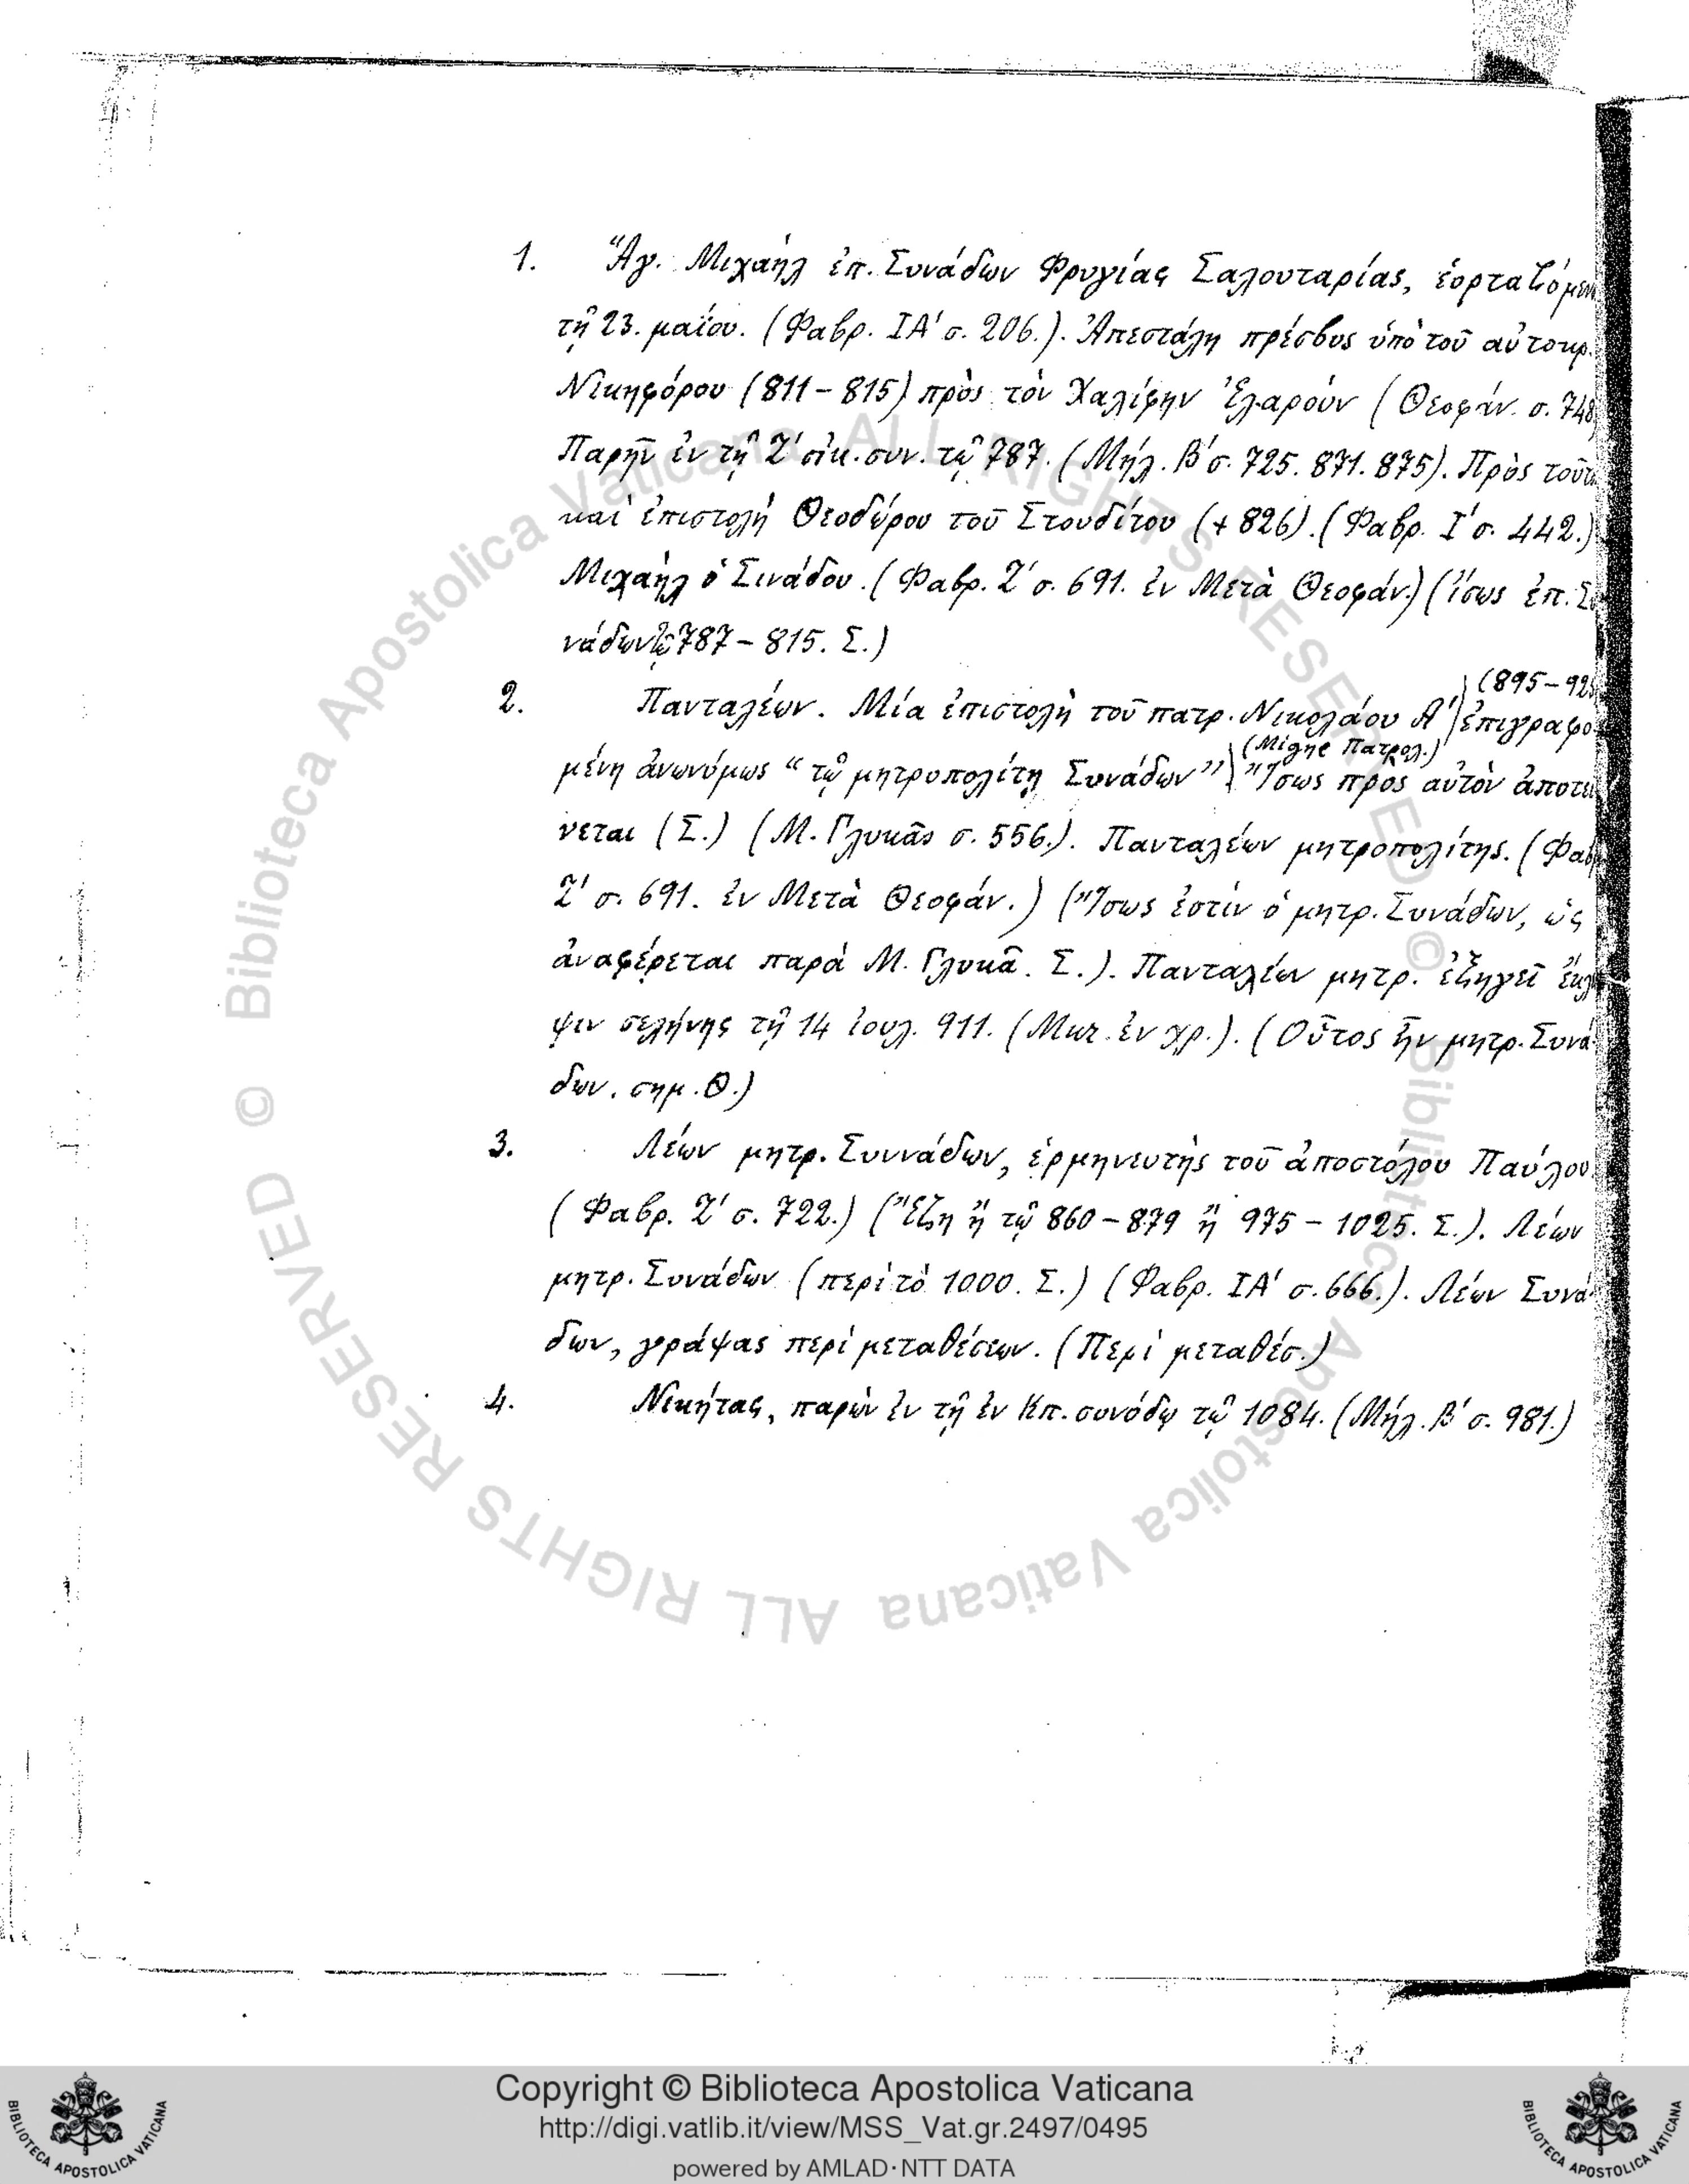 1. Ἅγ. Μιχαὴλ ἐπ. Συνάδων Φρυγίας Σαλουταρίας, ἑορταζόμεν
τῇ 23. μαΐου. (Φαβρ. ΙΑ' σ. 206.). Ἀπεστάλη πρέσβυς ὑπὸ τοῦ αὐτοκρ.
Νικηφόρου (811-815) πρὸς τὸν Χαλίφην Ἐλαροὺν (Θεοφάν. σ. 748
Παρῆν ἐν τῇ Ζ' οἰκ. συν. τῷ 787. (Μήλ. Β' σ. 725. 871. 875). Πρὸς τοῦτ
καὶ ἐπιστολὴ Θεοδώρου τοῦ Στουδίτου (+ 826). (Φαβρ. Ι' σ. 442.)
Μιχαὴλ ὁ Σινάδου. (Φαβρ. Ζ' σ. 691. ἐν Μετὰ Θεοφάν.) (ἴσως ἐπ. Συ
νάδων τῷ 787-815. Σ.)
2. Πανταλέων. Μία ἐπιστολὴ τοῦ πατρ. Νικολάου Α' (895-925 ἐπιγραφο-
μένη ἀνωνύμως "τῷ μητροπολίτῃ Συνάδων" (Migne Πατρολ.) Ἴσως πρὸς αὐτὸν ἀποτεί
νεται (Σ.) (Μ. Γλυκᾶς σ. 556.). Πανταλέων μητροπολίτης. (Φαβρ
Ζ' σ. 691. ἐν Μετὰ Θεοφάν.) (Ἴσως ἐστὶν ὁ μητρ. Συνάδων, ὡς
ἀναφέρεται παρὰ Μ. Γλυκᾶ. Σ.). Πανταλέων μητρ. ἐξηγεῖ ἔκλ
ψιν σελήνης τῇ 14 ἰουλ. 911. (Μικ. ἐν χρ.). (Οὗτος ἦν μητρ. Συνά-
δων. σημ. Θ.)
3. Λέων μητρ. Συννάδων, ἑρμηνευτὴς τοῦ ἀποστόλου Παύλου
(Φαβρ. Ζ' σ. 722.) (Ἔζη ἢ τῷ 860-879 ἢ 975-1025. Σ.). Λέων
μητρ. Συνάδων (περὶ τὸ 1000. Σ.) (Φαβρ. ΙΑ' σ. 666.). Λέων Συνά-
δων, γράψας περὶ μεταθέσεων. (Περὶ μεταθέσ.)
4. Νικήτας, παρὼν ἐν τῇ ἐν Κπ. συνόδῳ τῷ 1084. (Μήλ. Β' σ. 981.)
© Biblioteca Apostolica Vaticana ALL RIGHTS RESERVED © Biblioteca Apostolica Vaticana ALL RIGHTS RESERVED
Copyright © Biblioteca Apostolica Vaticana
http://digi.vatlib.it/view/MSS_Vat.gr.2497/0495
powered by AMLAD·NTT DATA
BIBLIOTECA APOSTOLICA VATICANA
BIBLIOTECA APOSTOLICA VATICANA